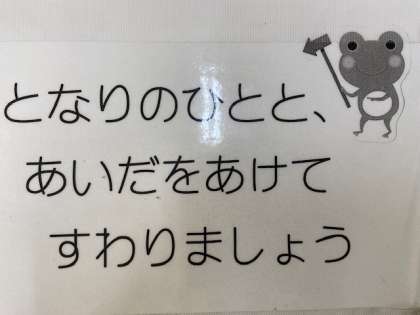 となりのひとと、
あいだをあけて
すわりましょう